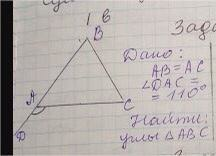 1 в
Зада
B
Дано:
AB=AC
∠DAC=
=110°
A
C
Найти:
углы △ABC
D